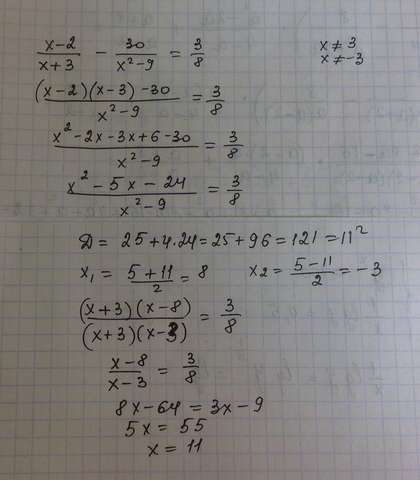 (x-2)/(x+3) - 30/(x²-9) = 3/8    x ≠ 3
x ≠ -3
((x-2)(x-3)-30)/(x²-9) = 3/8
(x²-2x-3x+6-30)/(x²-9) = 3/8
(x²-5x-24)/(x²-9) = 3/8
D = 25+4·24=25+96=121=11²
x₁ = (5+11)/2 = 8    x₂ = (5-11)/2 = -3
((x+3)(x-8))/((x+3)(x-3)) = 3/8
(x-8)/(x-3) = 3/8
8x-64 = 3x-9
5x = 55
x = 11